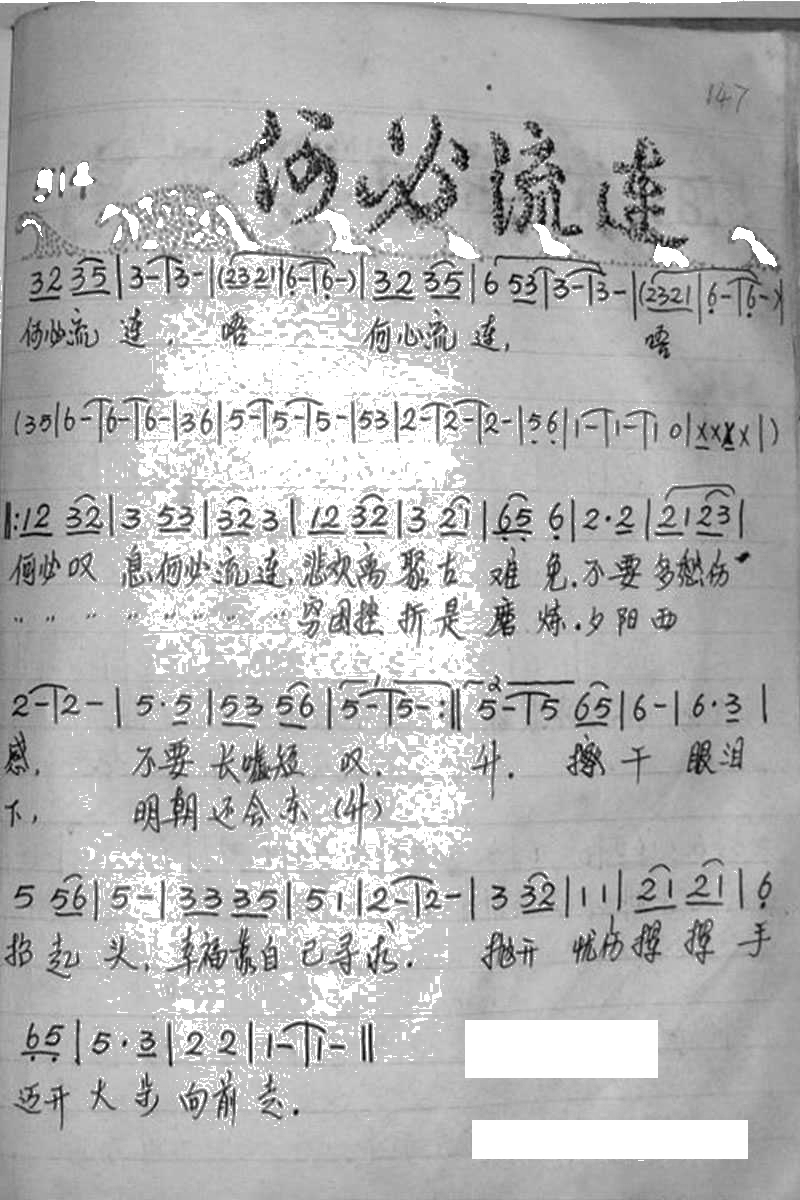 147
何必流连
32 35|3-|3-|(2321|6-|6-)|32 35|6 53|3-|3-|(2321|6-|6-)|
何必流 连, 唔 何必流 连, 唔
(35|6-|6-|6-|36|5-|5-|5-|53|2-|2-|2-|56|1-|1-|1 0|xxxx|)
‖:12 32|3 53|32 3|12 32|3 21|65 6|2·2|2123|
何必叹 息何必流连,悲欢离聚古 难 免.不要多愁伤
" " " " " " " " 穷困挫折是 磨 炼.夕阳西
2-|2-|5·5|53 56|5-|5-:‖5-|5 65|6-|6·3|
感, 不要长嘘短 叹. 升. 擦 干 眼泪
下, 明朝还会东(升)
5 56|5-|33 35|51|2-|2-|3 32|11|21 21|6
抬起 头,幸福靠自己寻求. 抛开 忧伤挥 挥 手
65|5·3|22|1-|1-‖
迈开大步向前走.